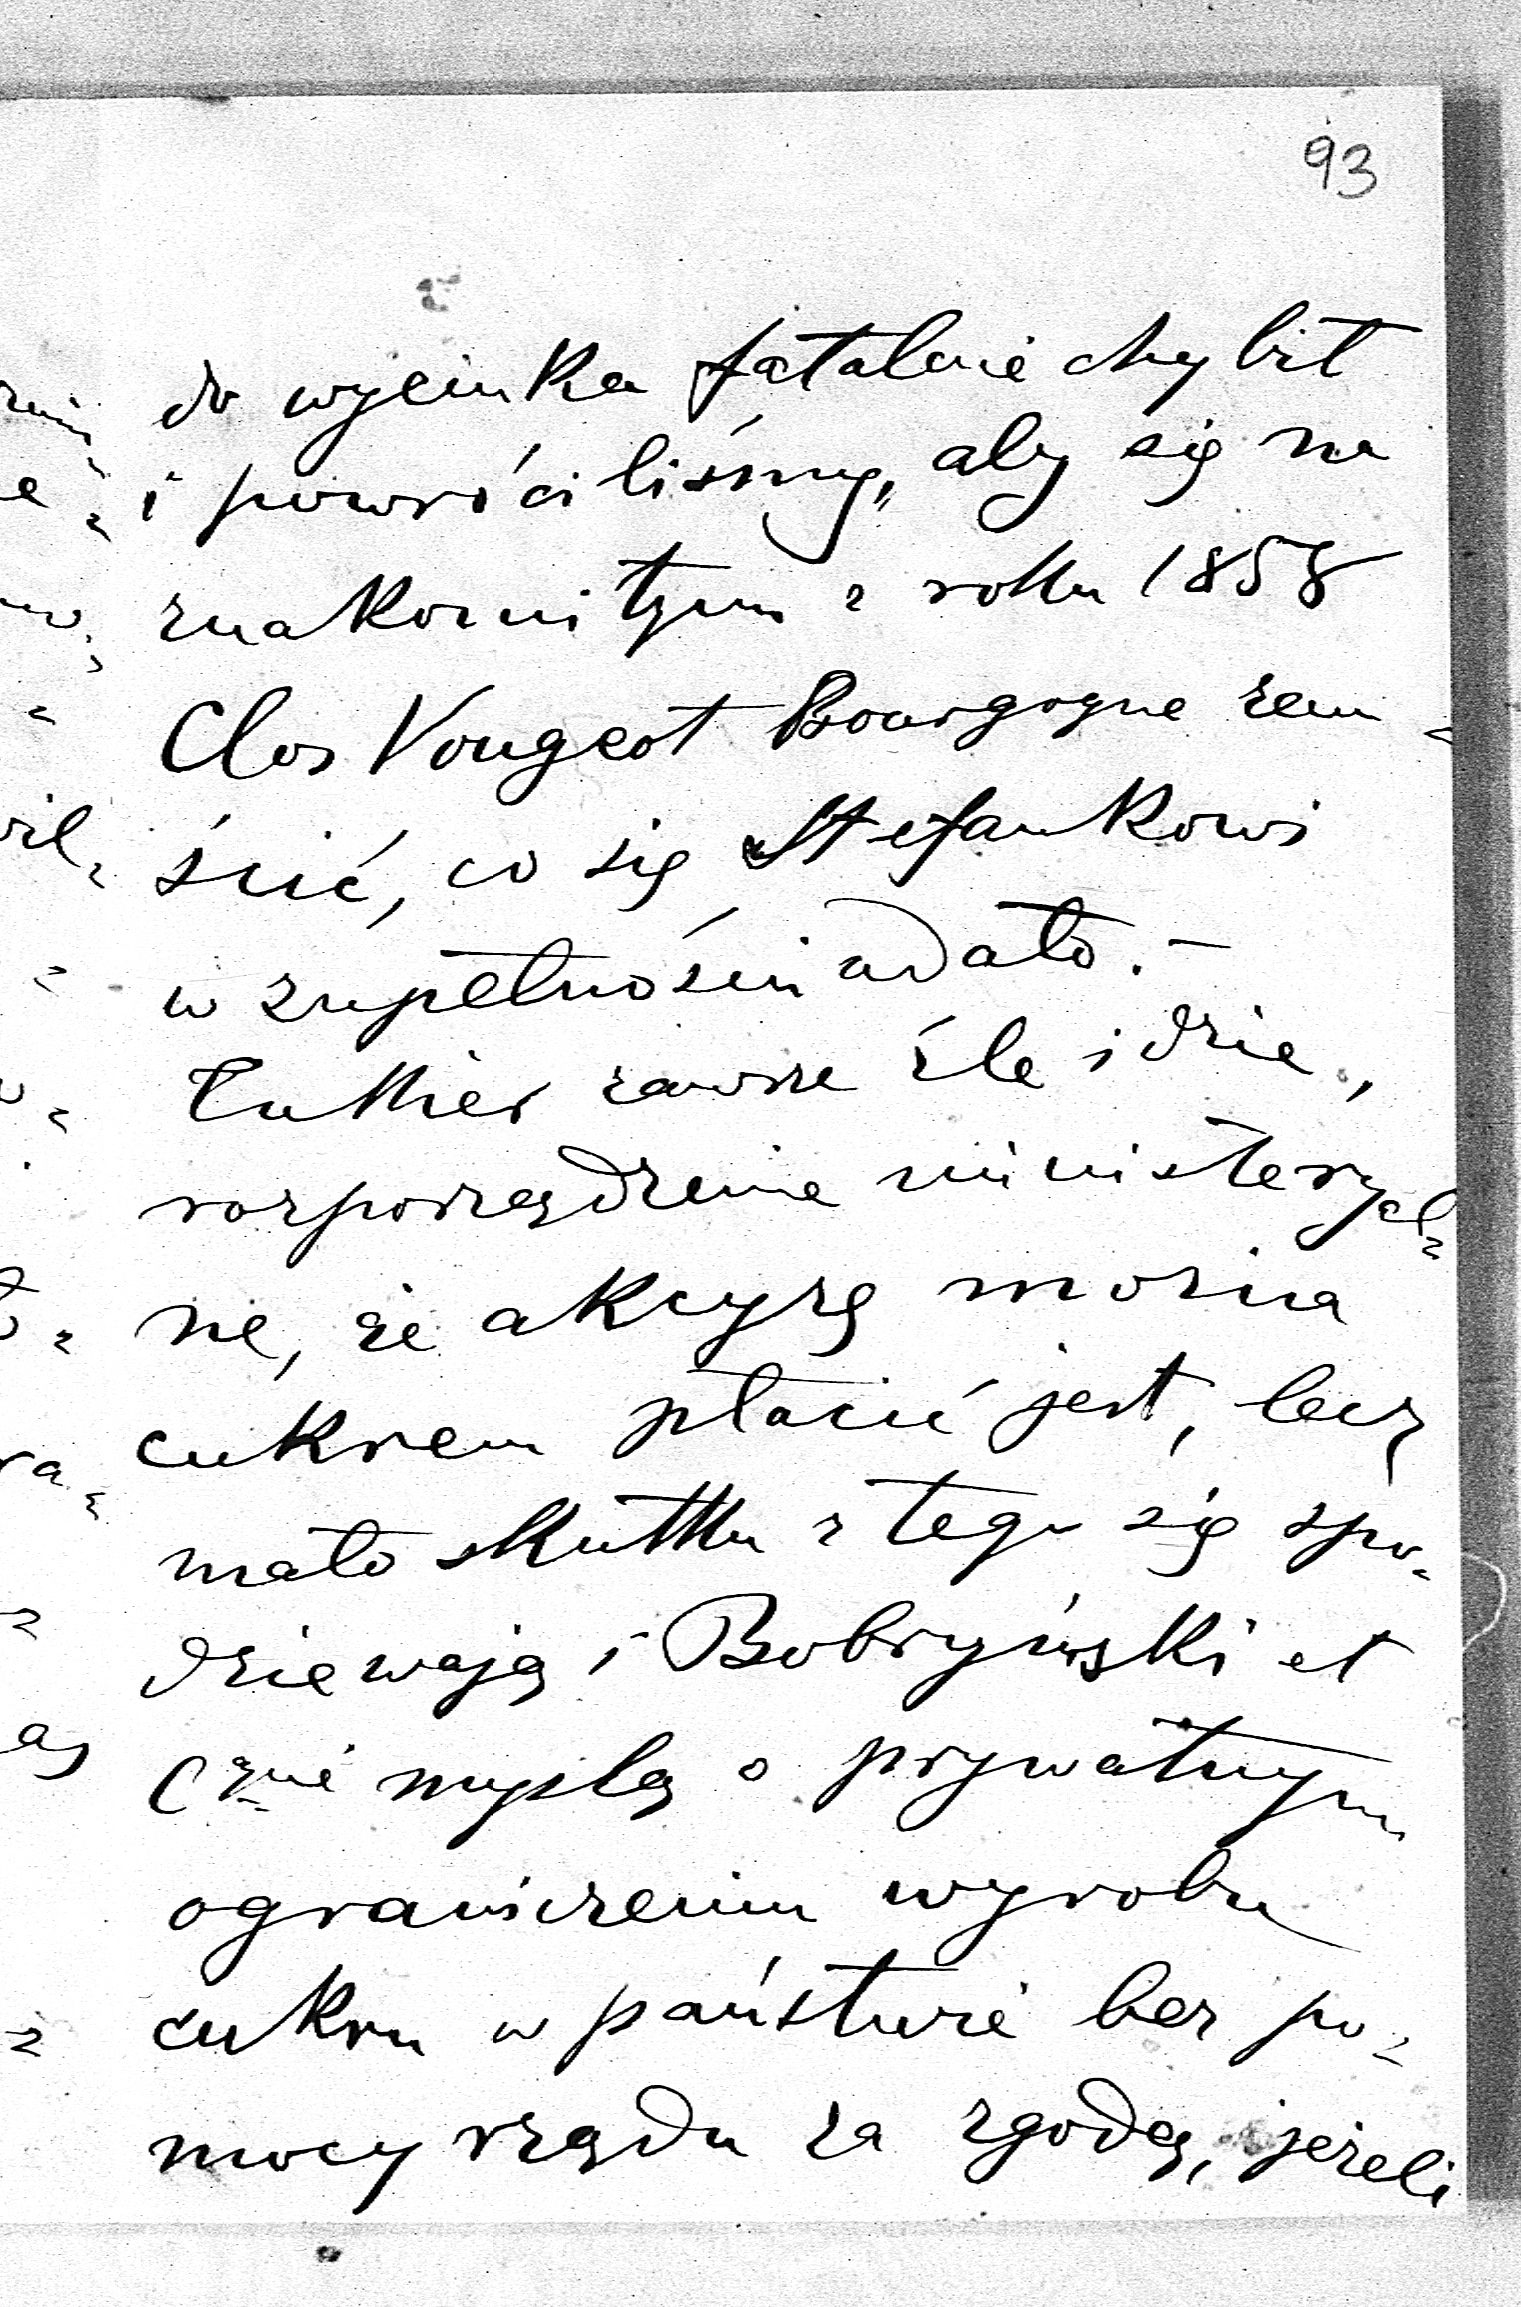 93
do wycinka fatalnie chybił
i powróciliśmy, aby się na
znakomitym z roku 1858
Clos Vougeot Bourgogne zem-
ścić, co się Stefankowi
w zupełności udało.-
Cukier zawsze źle idzie,
rozporządzenie ministeryal-
ne, że akcyzę można
cukrem płacić jest, lecz
mało skutku z tego się spo-
dziewają i Bobryński et
myślą o prywatnym
ograniczeniu wyrobu
cukru w państwie bez po-
mocy rządu za zgodą, jeżeli